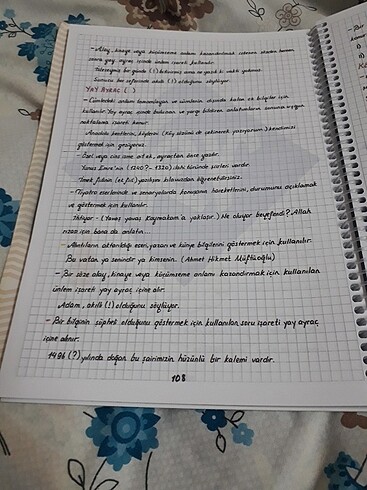 - Alay, kinaye veya küçümseme anlamı kazandırılmak istenen sözden hemen
sonra yay ayraç içinde ünlem işareti kullanılır.
İsteseymiş bir günde (!) bitirirmiş ama ne yazık ki vakti yokmuş.
(!) olduğunu söylüyor.
YAY AYRAÇ ( )
- Cümledeki anlamı tamamlayan ve cümlenin dışında kalan ek bilgiler için
kullanılır. Yay ayraç içinde bulunan ve yargı bildiren anlatımların sonuna uygun
noktalama işareti konur.
Anadolu kentlerini, köylerini (Köy sözünü de çekinerek yazıyorum.) kendimizi
göstermek için geziyoruz
- Özel veya cins isme ait ek, ayraçtan önce yazılır.
Yunus Emre'nin (1240?-1320)
- Tiyatro eserlerinde ve senaryolarda konuşanın hareketlerini, durumunu açıklamak
ve göstermek için kullanılır.
İhtiyar - (Yavaş yavaş Kaymakam'a yaklaşır.) Ne oluyor beyefendi? Allah
rızası için bana da anlatın...
- Alıntıların aktarıldığı eseri, yazarı ve künye bilgilerini göstermek için kullanılır.
Bu vatan ya senindir ya kimsenin. (Ahmet Hikmet Müftüoğlu)
- Bir söze alay, kinaye veya küçümseme anlamı kazandırmak için kullanılan
ünlem işareti yay ayraç içine alır.
Adam, akıllı (!) olduğunu söylüyor.
- Bir bilginin şüpheli olduğunu göstermek için kullanılan soru işareti yay ayraç
içine alınır.
1496 (?) yılında doğan bu şairimizin hüzünlü bir kalemi vardır.
108